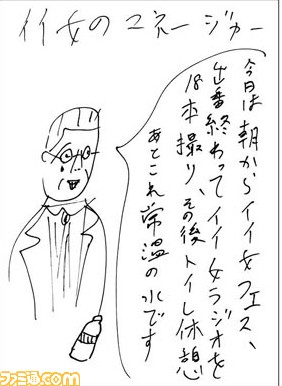 イイ女のマネージャー
今日は朝からイイ女フェス、
出番終わってイイ女ラジオを
18本撮り、その後トイレ休憩
あとこれ常温の水です
ファミ通.com